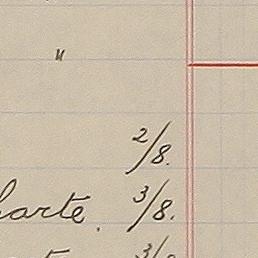 "
2/8.
arte. 3/8.
3/8